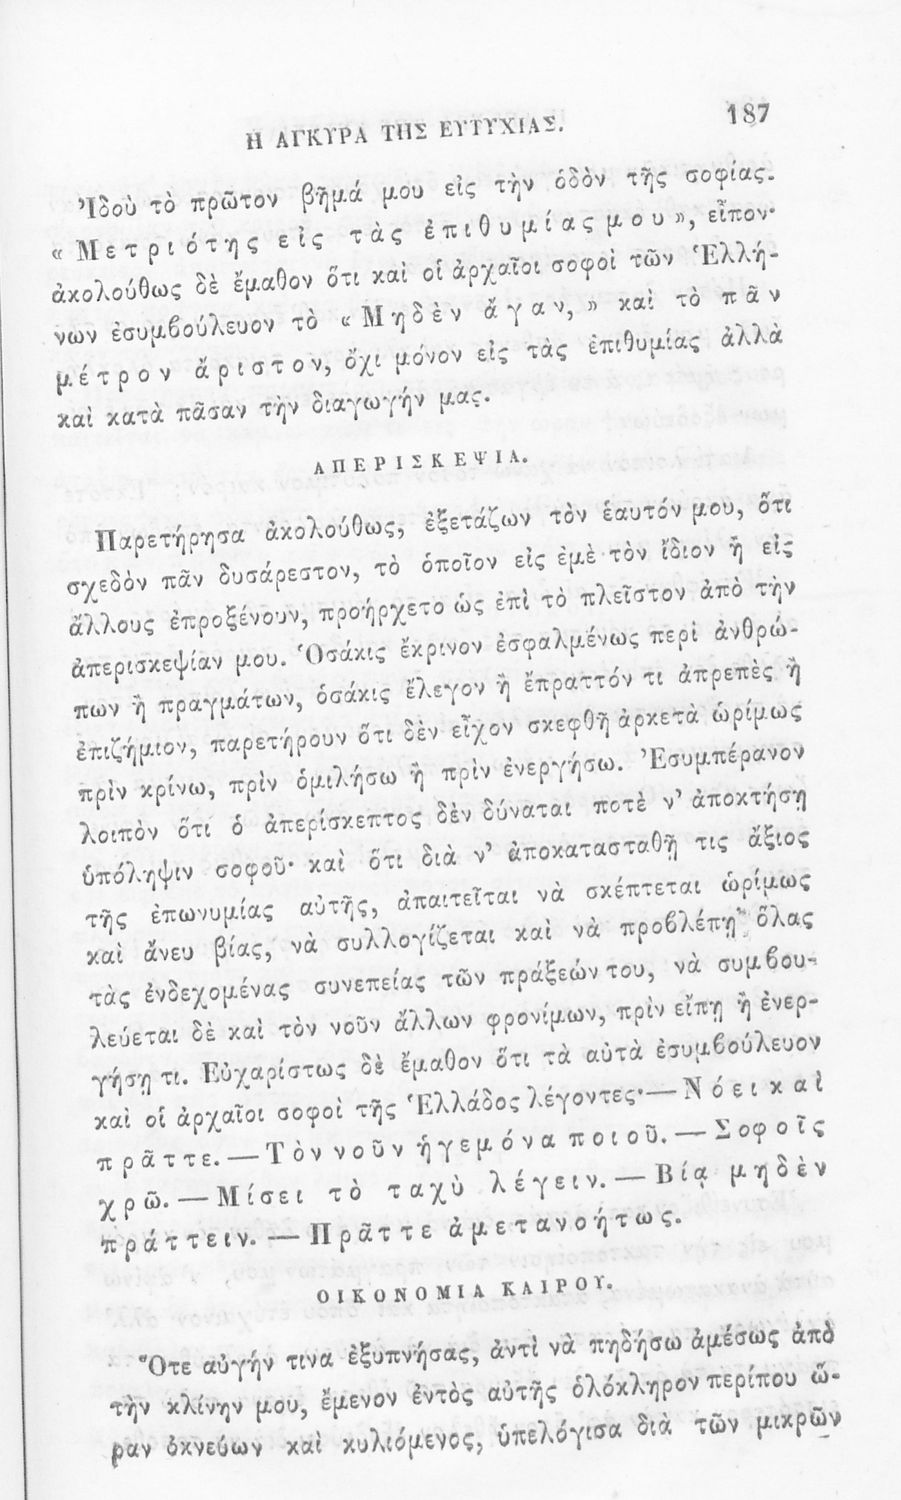 Η ΑΓΚΥΡΑ ΤΗΣ ΕΥΤΥΧΙΑΣ. 187
Ἰδοὺ τὸ πρῶτον βῆμά μου εἰς τὴν ὁδὸν τῆς σοφίας.
« Μετριότης εἰς τὰς ἐπιθυμίας μου », εἶπον·
ἀκολούθως δὲ ἔμαθον ὅτι καὶ οἱ ἀρχαῖοι σοφοὶ τῶν Ἑλλή-
νων ἐσυμβούλευον τὸ « Μηδὲν ἄγαν, » καὶ τὸ πᾶν
μέτρον ἄριστον, ὄχι μόνον εἰς τὰς ἐπιθυμίας ἀλλὰ
καὶ κατὰ πᾶσαν τὴν διαγωγήν μας.
ΑΠΕΡΙΣΚΕΨΙΑ.
Παρετήρησα ἀκολούθως, ἐξετάζων τὸν ἑαυτόν μου, ὅτι
σχεδὸν πᾶν δυσάρεστον, τὸ ὁποῖον εἰς ἐμὲ τὸν ἴδιον ἢ εἰς
ἄλλους ἐπροξένουν, προήρχετο ὡς ἐπὶ τὸ πλεῖστον ἀπὸ τὴν
ἀπερισκεψίαν μου. Ὁσάκις ἔκρινον ἐσφαλμένως περὶ ἀνθρώ-
πων ἢ πραγμάτων, ὁσάκις ἔλεγον ἢ ἔπραττόν τι ἀπρεπὲς ἢ
ἐπιζήμιον, παρετήρουν ὅτι δὲν εἶχον σκεφθῆ ἀρκετὰ ὡρίμως
πρὶν κρίνω, πρὶν ὁμιλήσω ἢ πρὶν ἐνεργήσω. Ἐσυμπέρανον
λοιπὸν ὅτι ὁ ἀπερίσκεπτος δὲν δύναται ποτὲ ν' ἀποκτήσῃ
ὑπόληψιν σοφοῦ· καὶ ὅτι διὰ ν' ἀποκατασταθῇ τις ἄξιος
τῆς ἐπωνυμίας αὐτῆς, ἀπαιτεῖται νὰ σκέπτεται ὡρίμως
καὶ ἄνευ βίας, νὰ συλλογίζεται καὶ νὰ προβλέπῃ ὅλας
τὰς ἐνδεχομένας συνεπείας τῶν πράξεών του, νὰ συμβου-
λεύεται δὲ καὶ τὸν νοῦν ἄλλων φρονίμων, πρὶν εἴπῃ ἢ ἐνερ-
γήσῃ τι. Εὐχαρίστως δὲ ἔμαθον ὅτι τὰ αὐτὰ ἐσυμβούλευον
καὶ οἱ ἀρχαῖοι σοφοὶ τῆς Ἑλλάδος λέγοντες·— Νόει καὶ
πρᾶττε. — Τὸν νοῦν ἡγεμόνα ποιοῦ. — Σοφοῖς
χρῶ. — Μίσει τὸ ταχὺ λέγειν. — Βίᾳ μηδὲν
πράττειν. — Πρᾶττε ἀμετανοήτως.
ΟΙΚΟΝΟΜΙΑ ΚΑΙΡΟΥ.
Ὅτε αὐγήν τινα ἐξυπνήσας, ἀντὶ νὰ πηδήσω ἀμέσως ἀπὸ
τὴν κλίνην μου, ἔμενον ἐντὸς αὐτῆς ὁλόκληρον περίπου ὥ-
ραν ὀκνεύων καὶ κυλιόμενος, ὑπελόγισα διὰ τῶν μικρῶν